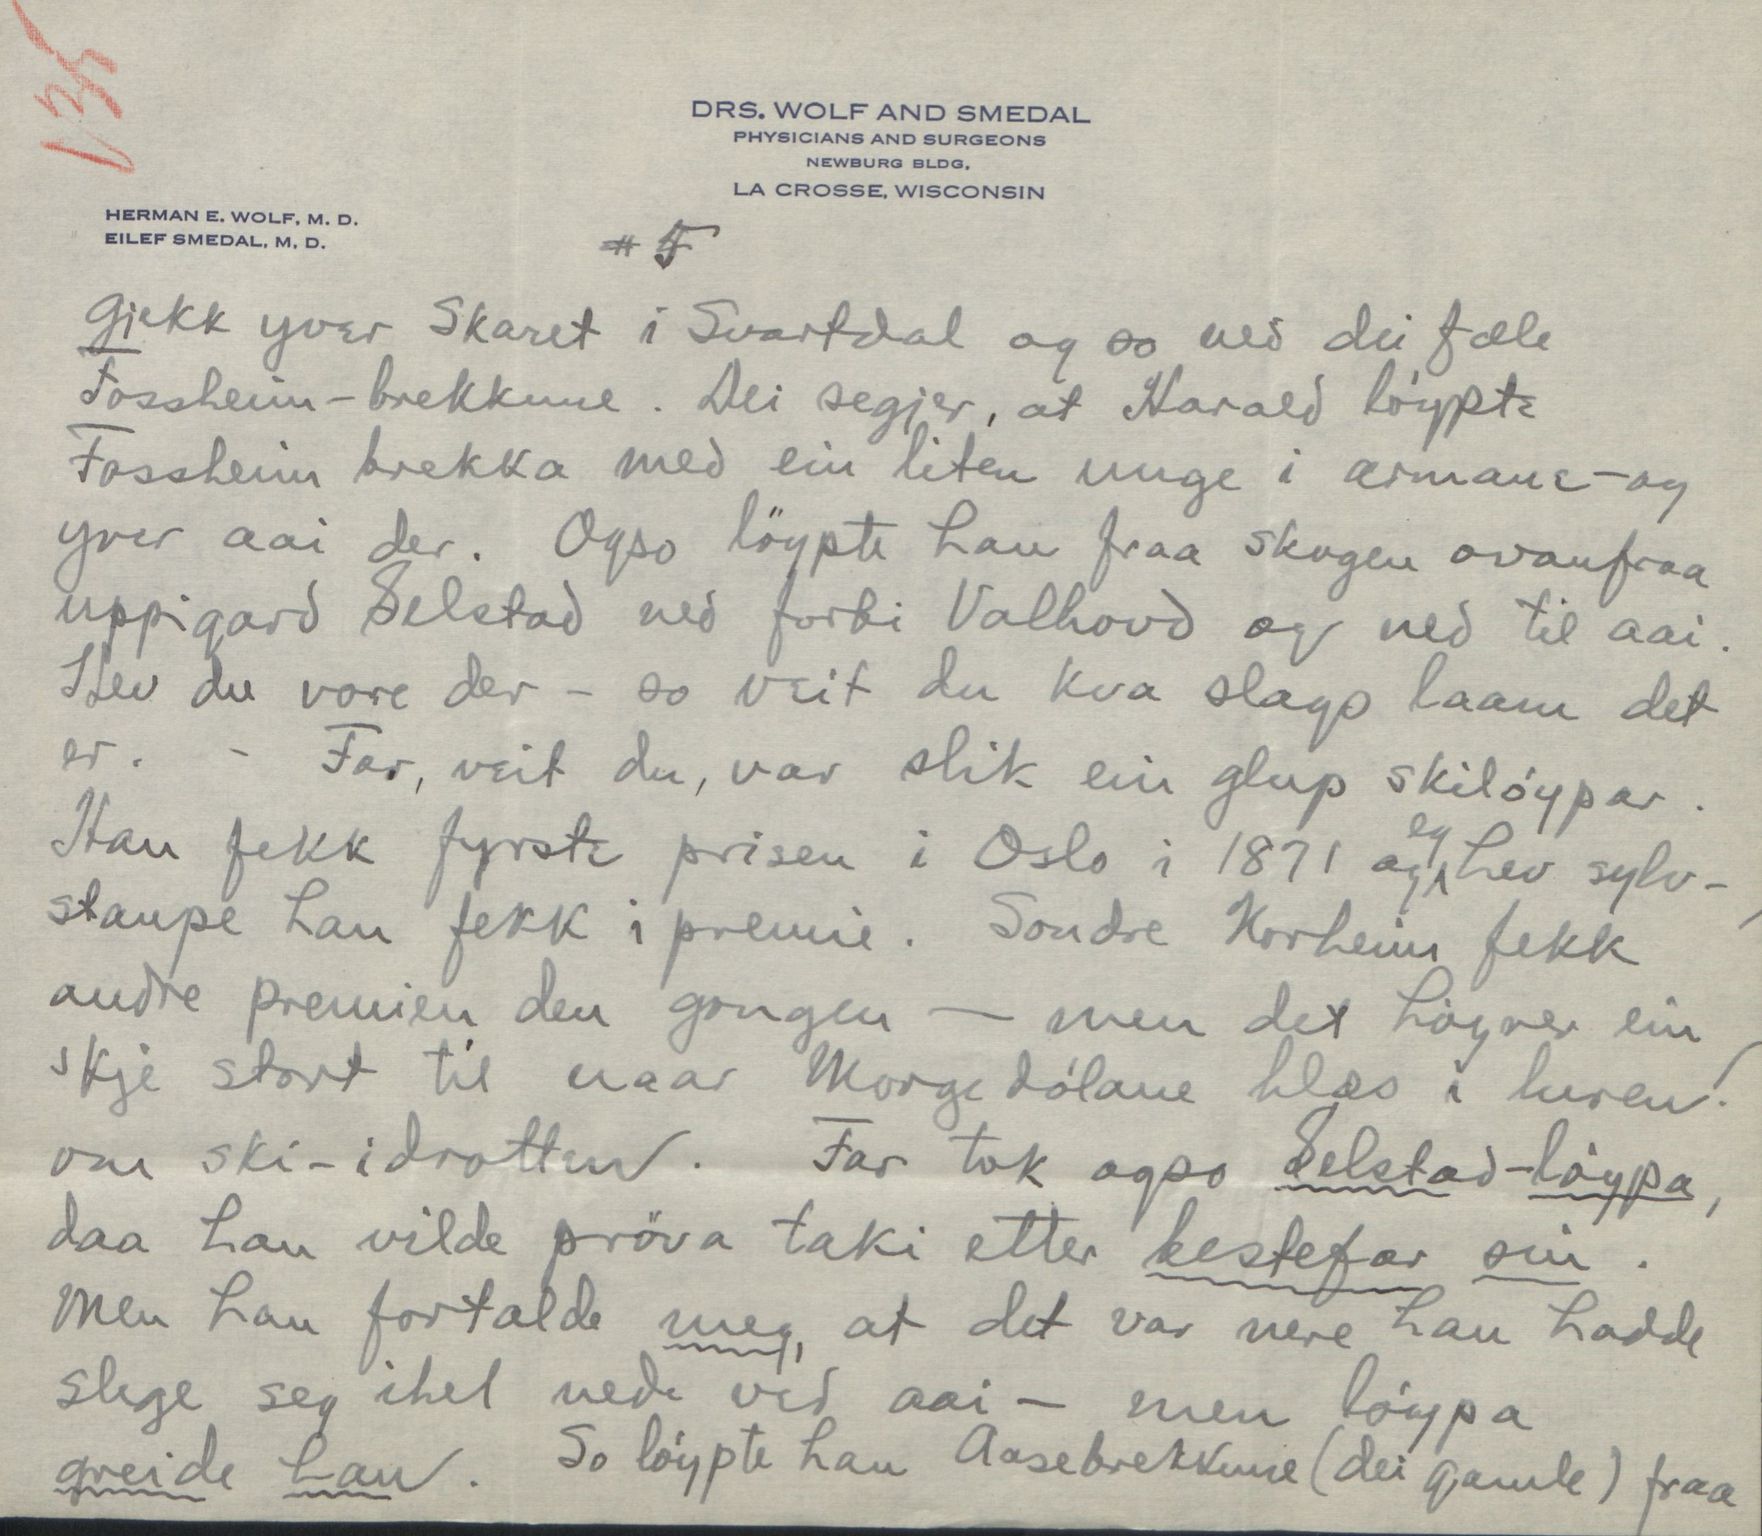 DRS. WOLF AND SMEDAL
PHYSICIANS AND SURGEONS
NEWBURG BLDG.
LA CROSSE, WISCONSIN
HERMAN E. WOLF, M. D.
EILEF SMEDAL, M. D.
# 5
gjekk yver Skaret i Svartdal og so ned dei fæle
Fossheim-brekkune. Dei segjer, at Harald löypte
Fossheim brekka med ein liten unge i armane - og
yver aai der. Ogso löypte han fraa skogen ovanfraa
uppigard Selstad ned forbi Valhovd og ned til aai.
Hev du vore der - so veit du kva slags laam det
er. - Far, veit du, var slik ein glup skilöypar.
Han fekk fyrste prisen i Oslo i 1871 og eg hev sylv-
staupe han fekk i premie. Sondre Norheim fekk
andre premien den gongen — men det höyrer ein
skje stort til naar Morgedölane blæs i luren!
om ski-idrotten. Far tok ogso Selstad-löypa,
daa han vilde pröva taki etter bestefar sin.
Men han fortalde meg, at det var nere han hadde
slege seg ihel nede ved aai — men löypa
greide han. So löypte han Aasebrekkune (dei gamle) fraa